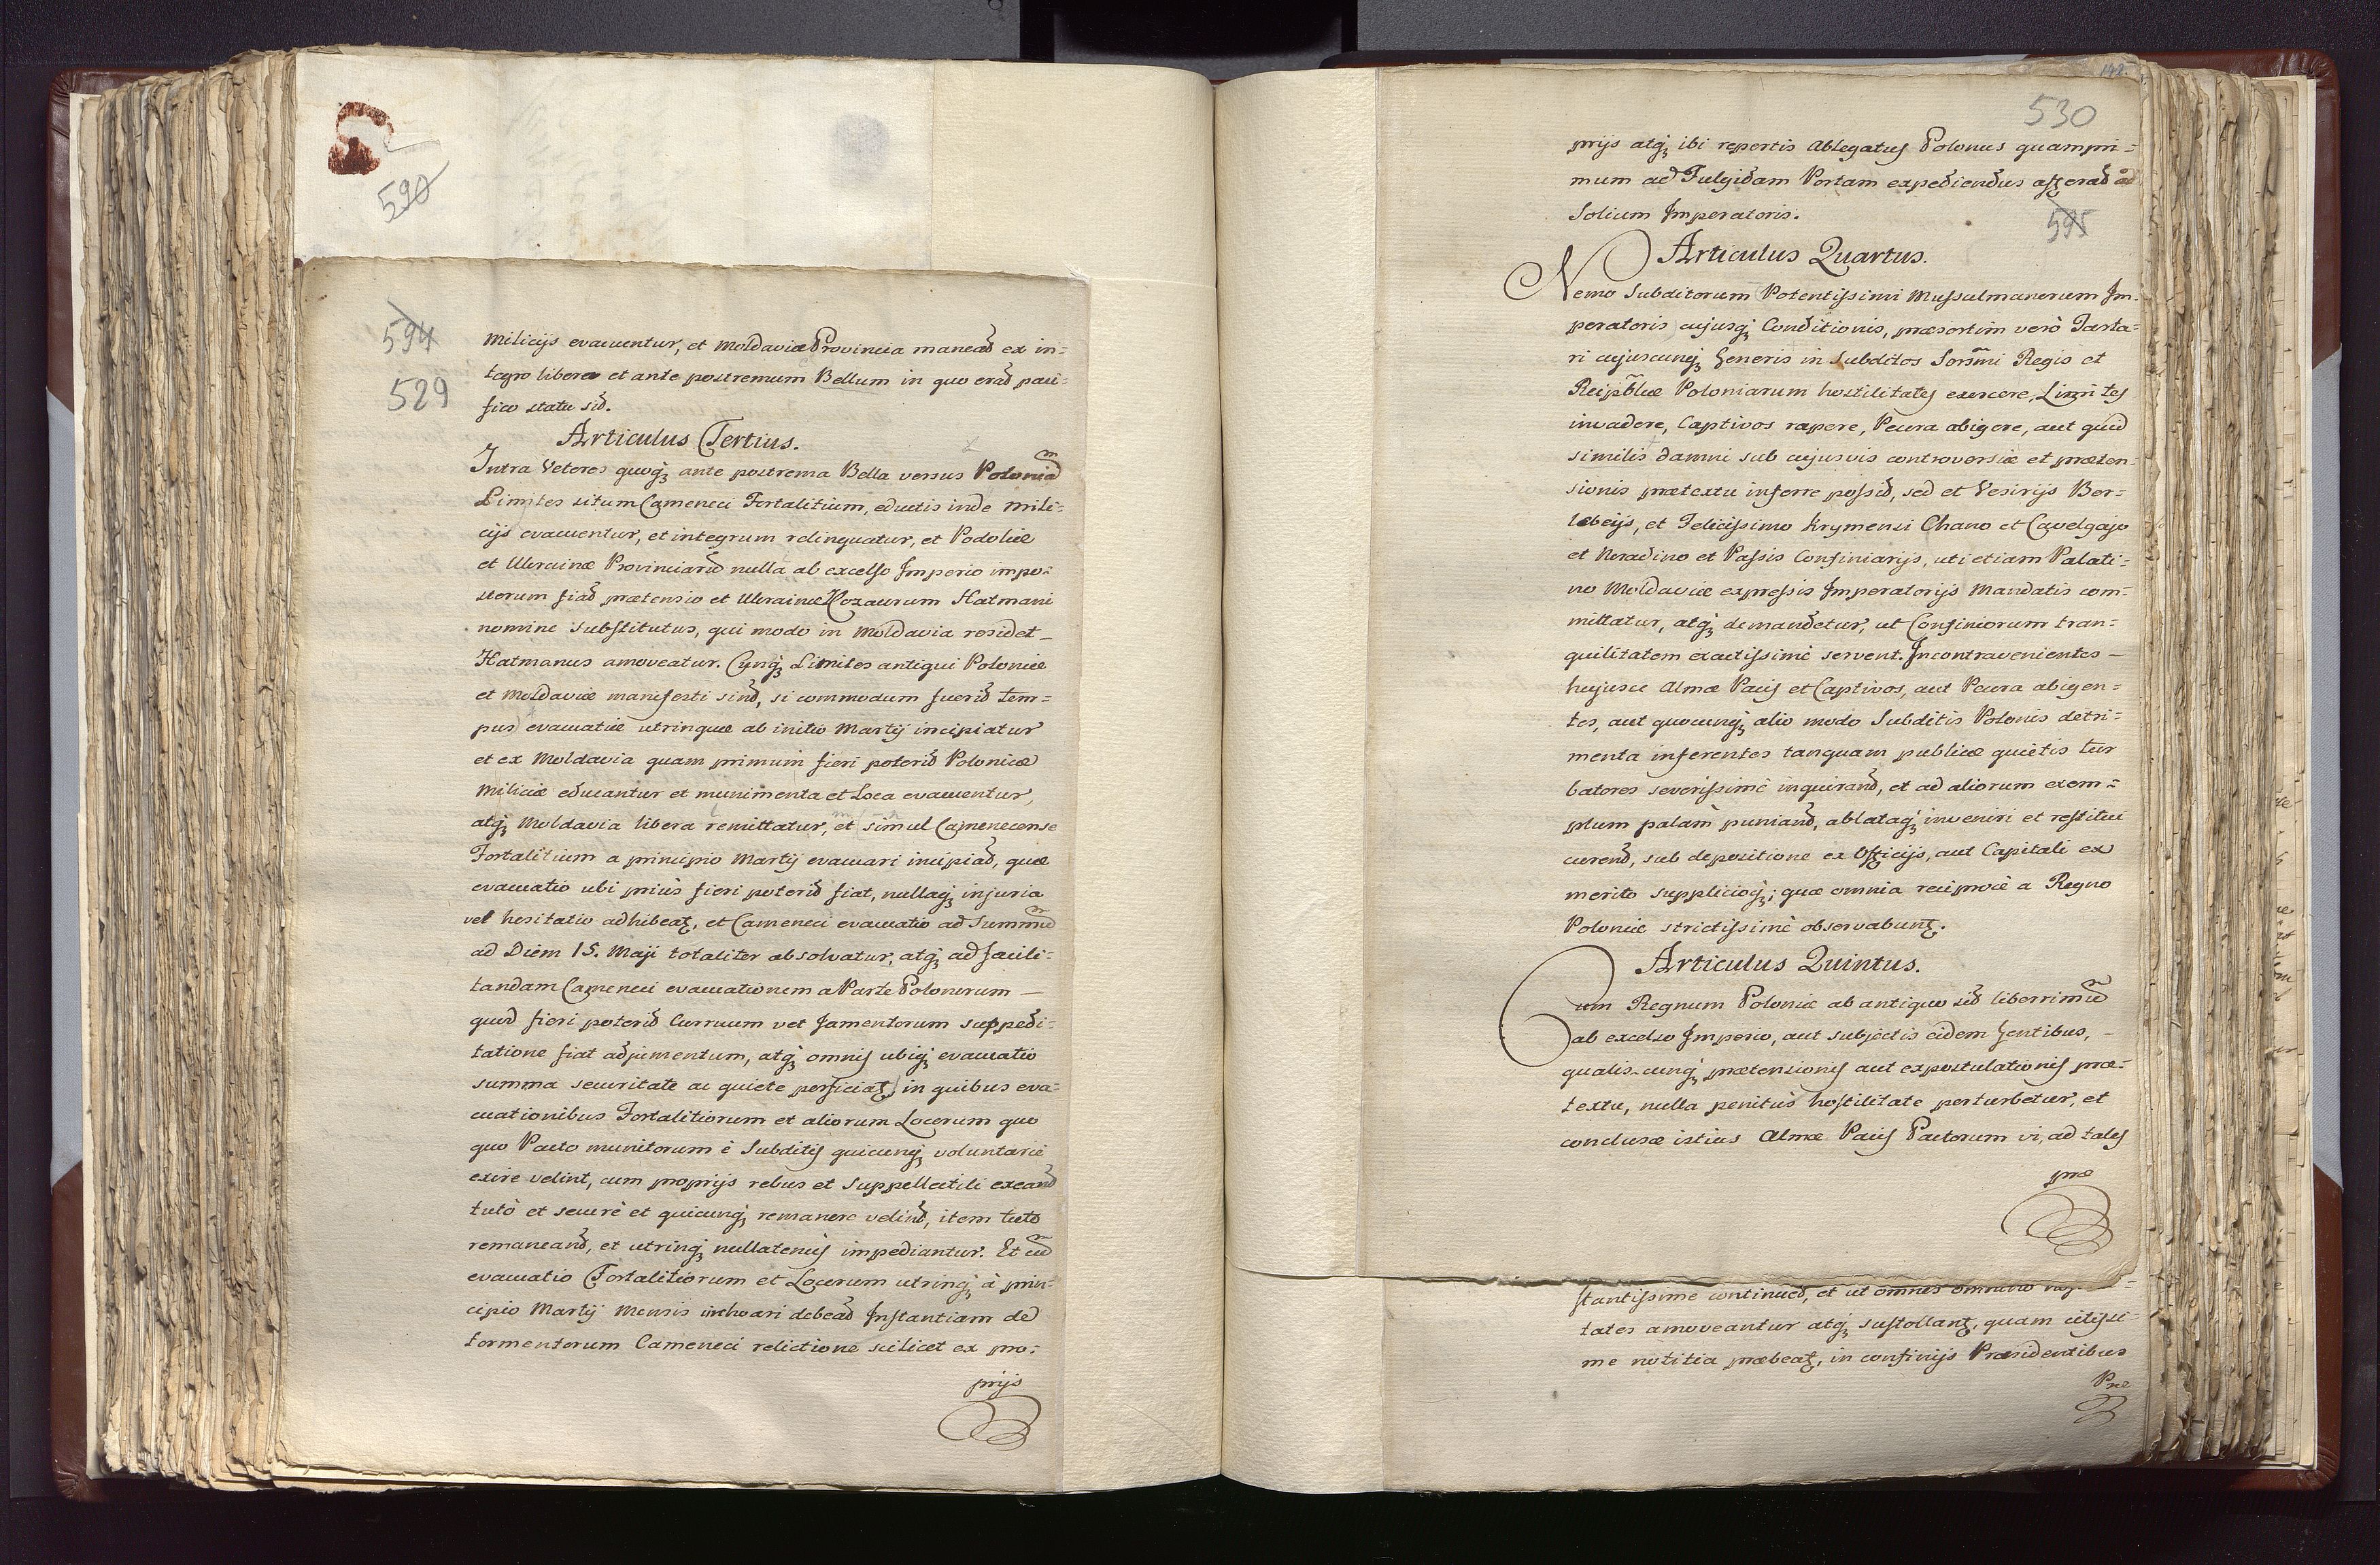 590
594
529
Milicijs evacuentur, et Moldaviæ Provincia maneat ex in=
tegro libera et ante postremum Bellum in quo erat paci=
fico statu sit.
Articulus Tertius.
Intra Veteres quoq; ante postrema Bella versus Poloniam
Limites situm Cameneci Fortalitium, eductis inde mili=
cijs evacuentur, et integrum relinquatur, et Podoliæ
et Ukrainæ Provinciarum nulla ab excelso Imperio impo=
sterum fiat prætensio et Ukrainæ Kozacorum Hatmani
nomine substitutus, qui modo in Moldavia residet_
Hatmanus amoveatur. Cumq; Limites antiqui Poloniæ
et Moldaviæ manifesti sint, si commodum fuerit tem=
pus evacuatiæ utrinque ab initio Martij incipiatur
et ex Moldavia quam primum fieri poterit Polonicæ
Miliciæ educantur et munimenta et Loca evacuentur,
atq; Moldavia libera remittatur, et simul Camenecense
Fortalitium a principio Martij evacuari incipiat, quæ
evacuatio ubi priùs fieri poterit fiat, nullaq; injuria
vel hesitatio adhibeatur, et Cameneci evacuatio ad Summum
ad Diem 15. Maji totaliter absolvatur, atq; ad facili=
tandam Cameneci evacuationem a Parte Polonorum —
quod fieri poterit Curruum vel Jamentorum suppedi=
tatione fiat adjumentum, atq; omnis ubiq; evacuatio
summa securitate ac quiete perficiatur, in quibus eva=
cuationibus Fortalitiorum et aliorum Locorum quo
quo Pacto munitorum è Subditis quicunq; voluntariè
exire velint, cum proprijs rebus et suppellectili exeant
tutò et securè et quicunq; remanere velint, item tutò
remaneant, et utrinq; nullatenus impediantur. Et cum
evacuatio Fortalitiorum et Locorum utrinq; à prin=
cipio Martij Mensis inchoari debeat Instantiam de
tormentorum Cameneci relictione scilicet ex pro=
prijs
142.
530
prijs atq; ibi repertis Ablegatus Polonus quampri=
mum ad Fulgidam Portam expediendus afferat ad
Solium Imperatoris.
595
Articulus Quartus.
Nemo Subditorum Potentissimi Mussulmanorum Im=
peratoris cujusq; Conditionis, præsertim verò Tarta=
ri cujuscunq; Generis in Subditos Sermi Regis et
Reipblicæ Poloniarum hostilitates exercere, Limites
invadere, Captivos rapere, Pecora abigere, aut quid
similis damni sub cujusvis controversiæ et præten=
sionis prætextu inferre possit, sed et Vesirijs Ber=
lebeijs, et Felicissimo Krymensi Chano et Cavelgajo
et Noradino et Passis Confiniarijs, uti etiam Palati=
no Moldaviæ expressis Imperatorijs Mandatis com=
mittatur, atq; demandetur, ut Confiniorum tran=
quilitatem exactissimè servent. Incontravenientes —
hujusce Almæ Pacis et Captivos, aut Pecora abigen=
tes, aut quocunq; alio modo Subditis Polonis detri=
menta inferentes tanquam publicæ quietis tur
batores severissimè inquirant, et ad aliorum exem=
plum palàm puniant, ablataq; inveniri et restitui
curent, sub depositione ex Officijs, aut Capitali ex
merito supplicioq; quæ omnia reciprocè a Regno
Poloniæ strictissimè observabuntur.
Articulus Quintus.
Cum Regnum Poloniæ ab antiquo sit liberrimum
ab excelso Imperio, aut subjectis eidem Gentibus, -
qualiscunq; prætensionis aut expostulationis præ=
textu, nulla penitùs hostilitate perturbetur, et
conclusæ istius Almæ Pacis Pactorum vi, ad tales
præ
stantissime continued, et ut omnes omnino
tates amoveantur atq; sustollantur, quam citissi
me notitia præbeatur, in confinijs Præsidentibus
Præ